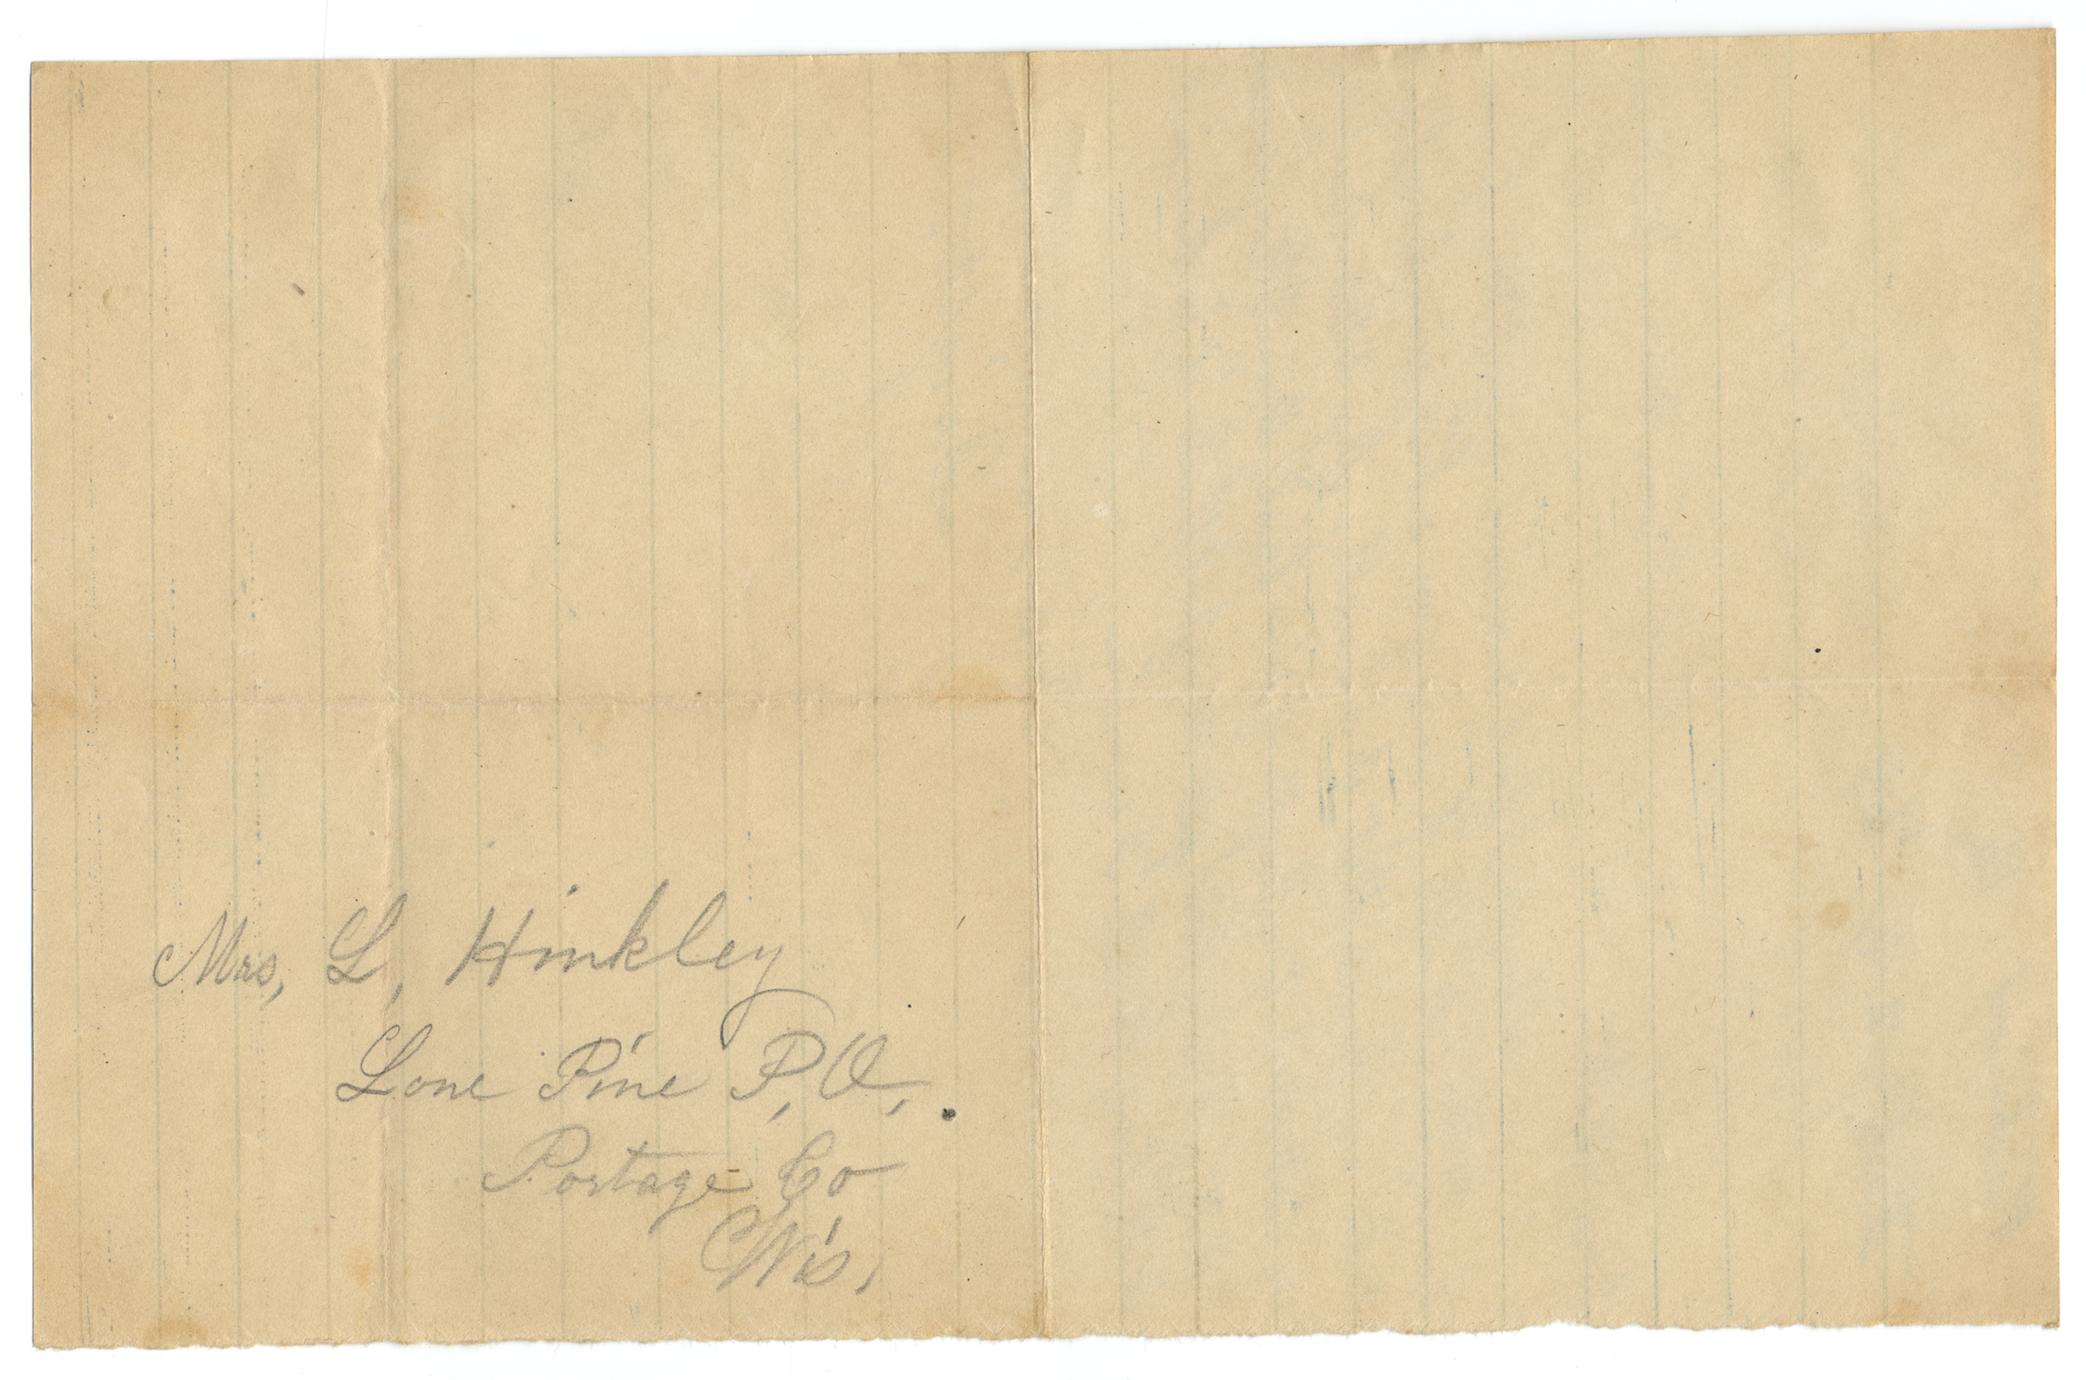 Mrs, L, Hinkley
Lone Pine P,O,.
Portage Co
Wis,